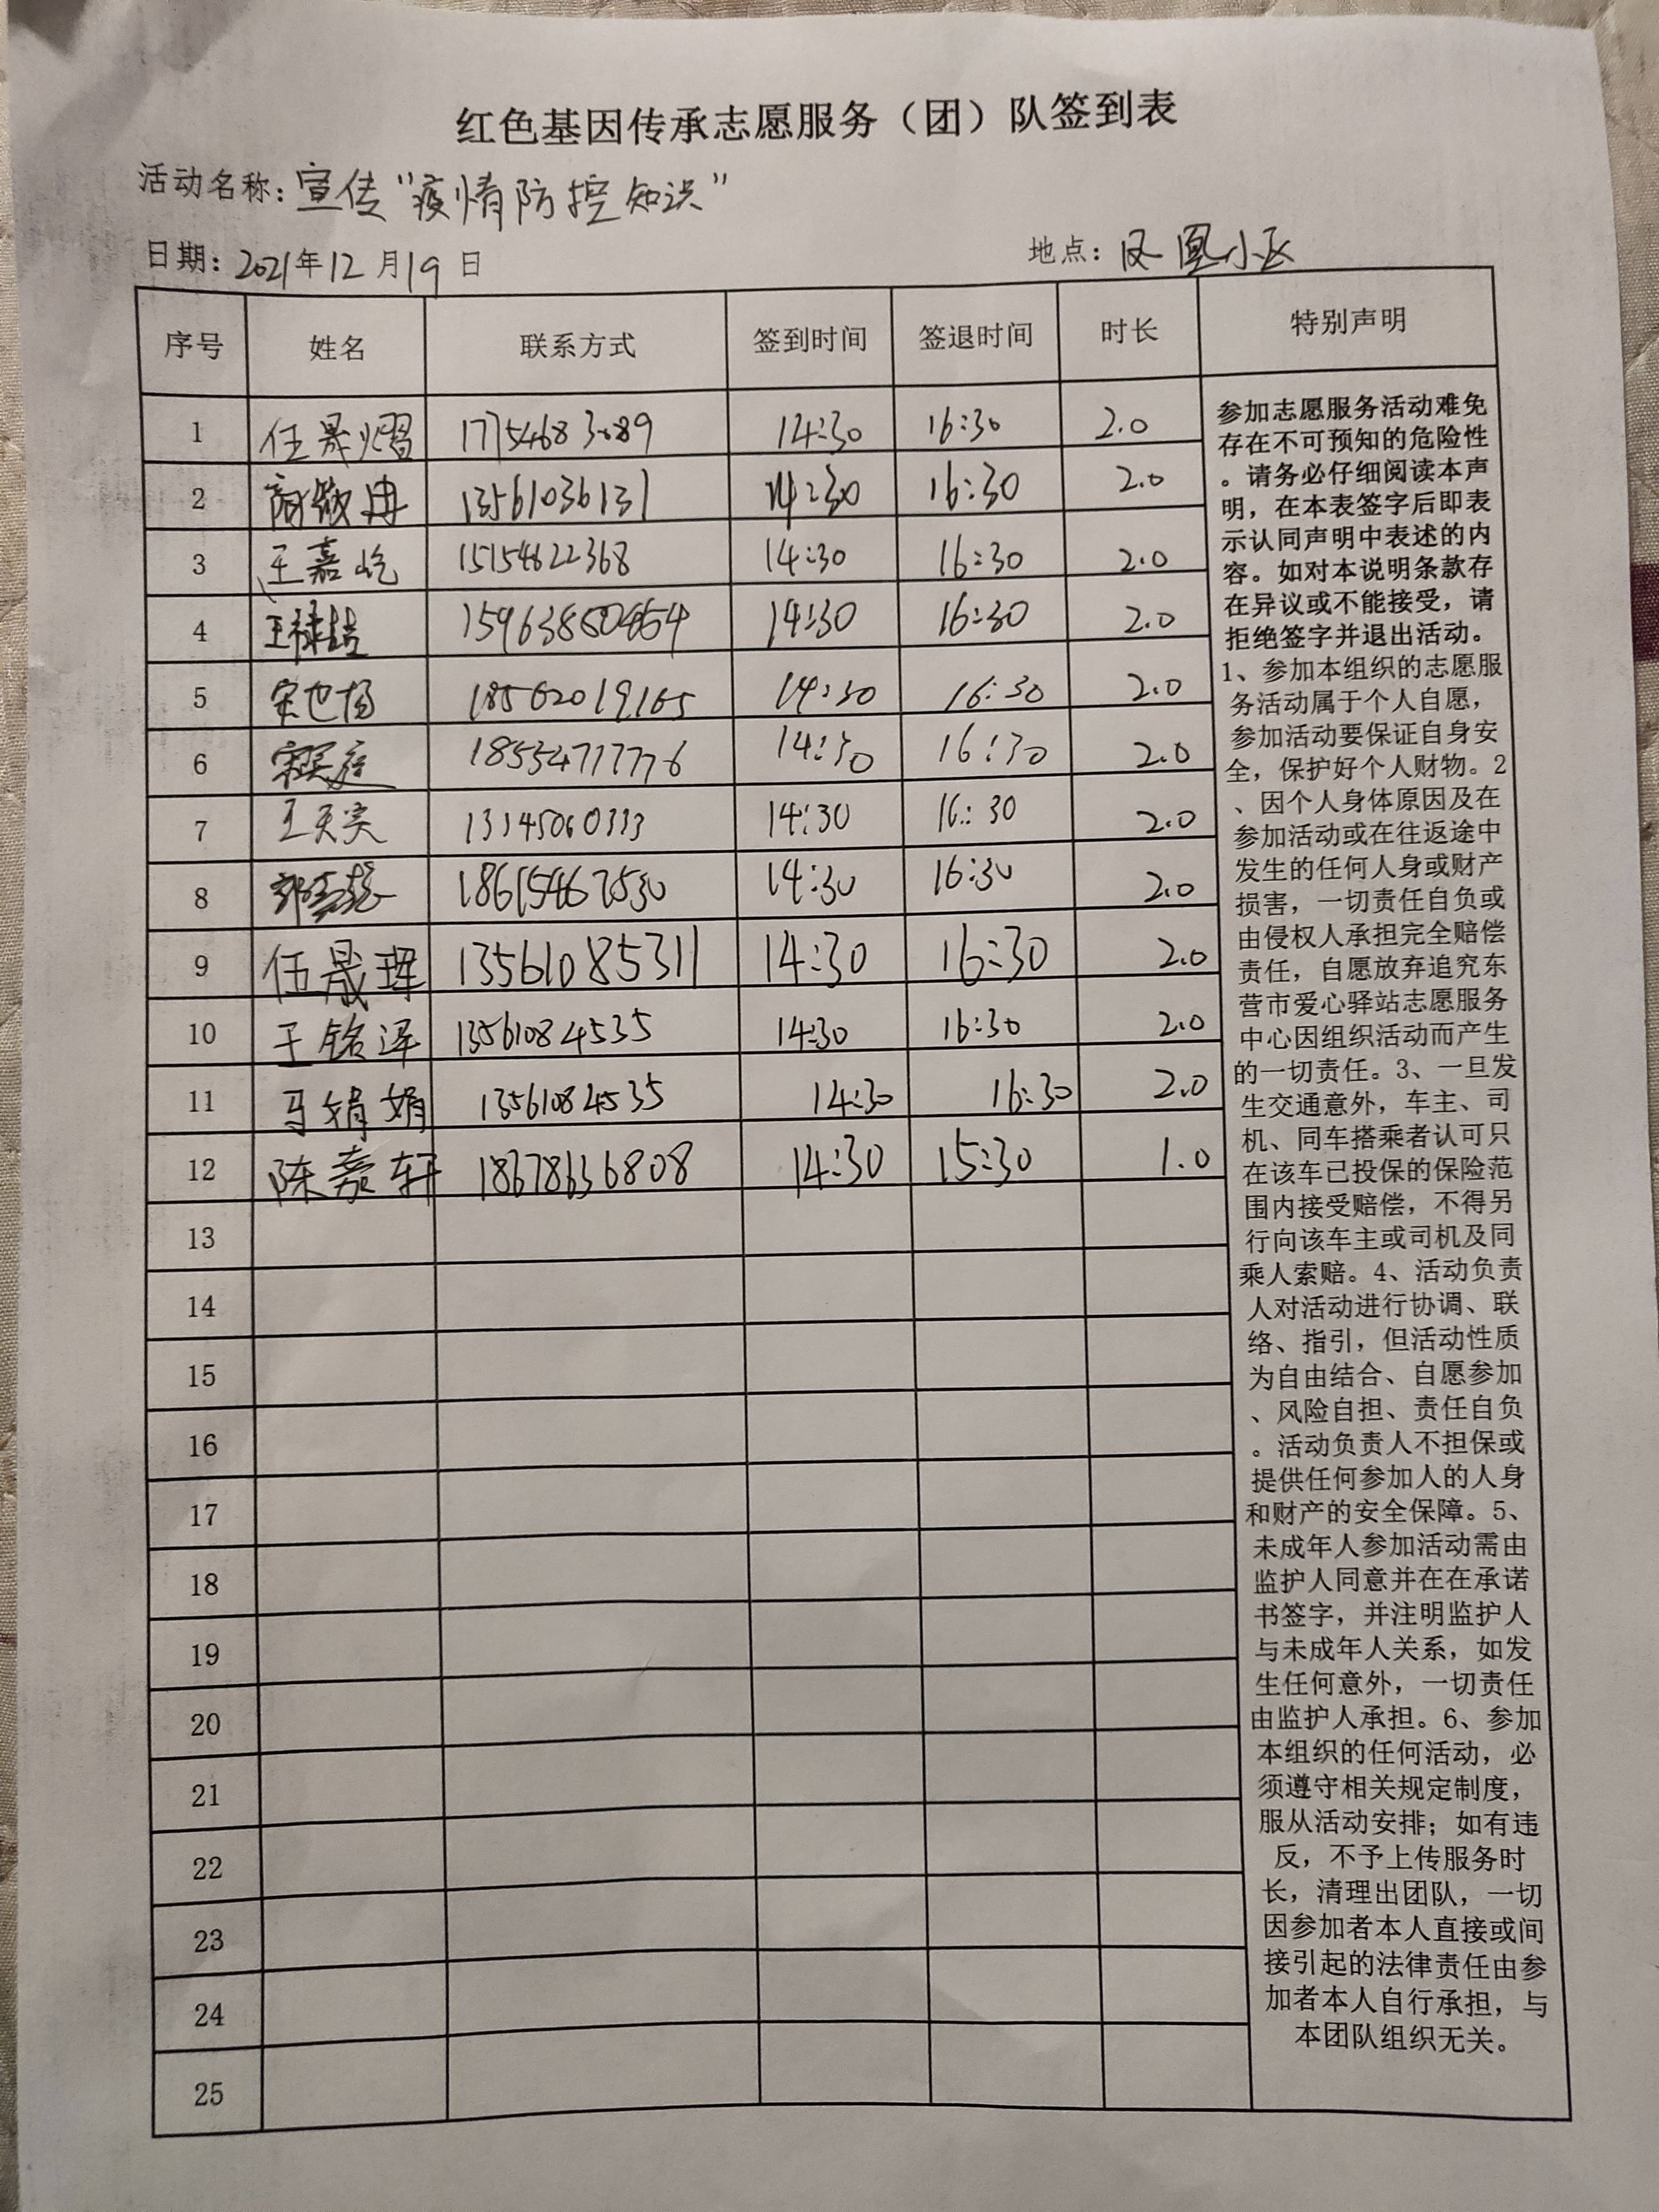 红色基因传承志愿服务（团）队签到表
活动名称：宣传“疫情防控知识”
日期：2021年12月19日 地点：凤凰小区
序号 姓名 联系方式 签到时间 签退时间 时长 特别声明
1 任晟熠 17754683089 14:30 16:30 2.0
2 13561036131 14:30 16:30 2.0
3 王嘉屹 15154622368 14:30 16:30 2.0
4 王禄喆 14:30 16:30 2.0
5 宋也扬 18562019165 14:30 16:30 2.0
6 18554717776 14:30 16:30 2.0
7 王奕实 14:30 16:30 2.0
8 18615467530 14:30 16:30 2.0
9 伍晟珲 13561085311 14:30 16:30 2.0
10 王铭泽 13561084535 14:30 16:30 2.0
11 马娟娟 13561084535 14:30 16:30 2.0
12 陈豪轩 18678636808 14:30 15:30 1.0
13
14
15
16
17
18
19
20
21
22
23
24
25
参加志愿服务活动难免
存在不可预知的危险性
。请务必仔细阅读本声
明，在本表签字后即表
示认同声明中表述的内
容。如对本说明条款存
在异议或不能接受，请
拒绝签字并退出活动。
1、参加本组织的志愿服
务活动属于个人自愿，
参加活动要保证自身安
全，保护好个人财物。2
、因个人身体原因及在
参加活动或在往返途中
发生的任何人身或财产
损害，一切责任自负或
由侵权人承担完全赔偿
责任，自愿放弃追究东
营市爱心驿站志愿服务
中心因组织活动而产生
的一切责任。3、一旦发
生交通意外，车主、司
机、同车搭乘者认可只
在该车已投保的保险范
围内接受赔偿，不得另
行向该车主或司机及同
乘人索赔。4、活动负责
人对活动进行协调、联
络、指引，但活动性质
为自由结合、自愿参加
、风险自担、责任自负
。活动负责人不担保或
提供任何参加人的人身
和财产的安全保障。5、
未成年人参加活动需由
监护人同意并在在承诺
书签字，并注明监护人
与未成年人关系，如发
生任何意外，一切责任
由监护人承担。6、参加
本组织的任何活动，必
须遵守相关规定制度，
服从活动安排；如有违
反，不予上传服务时
长，清理出团队，一切
因参加者本人直接或间
接引起的法律责任由参
加者本人自行承担，与
本团队组织无关。